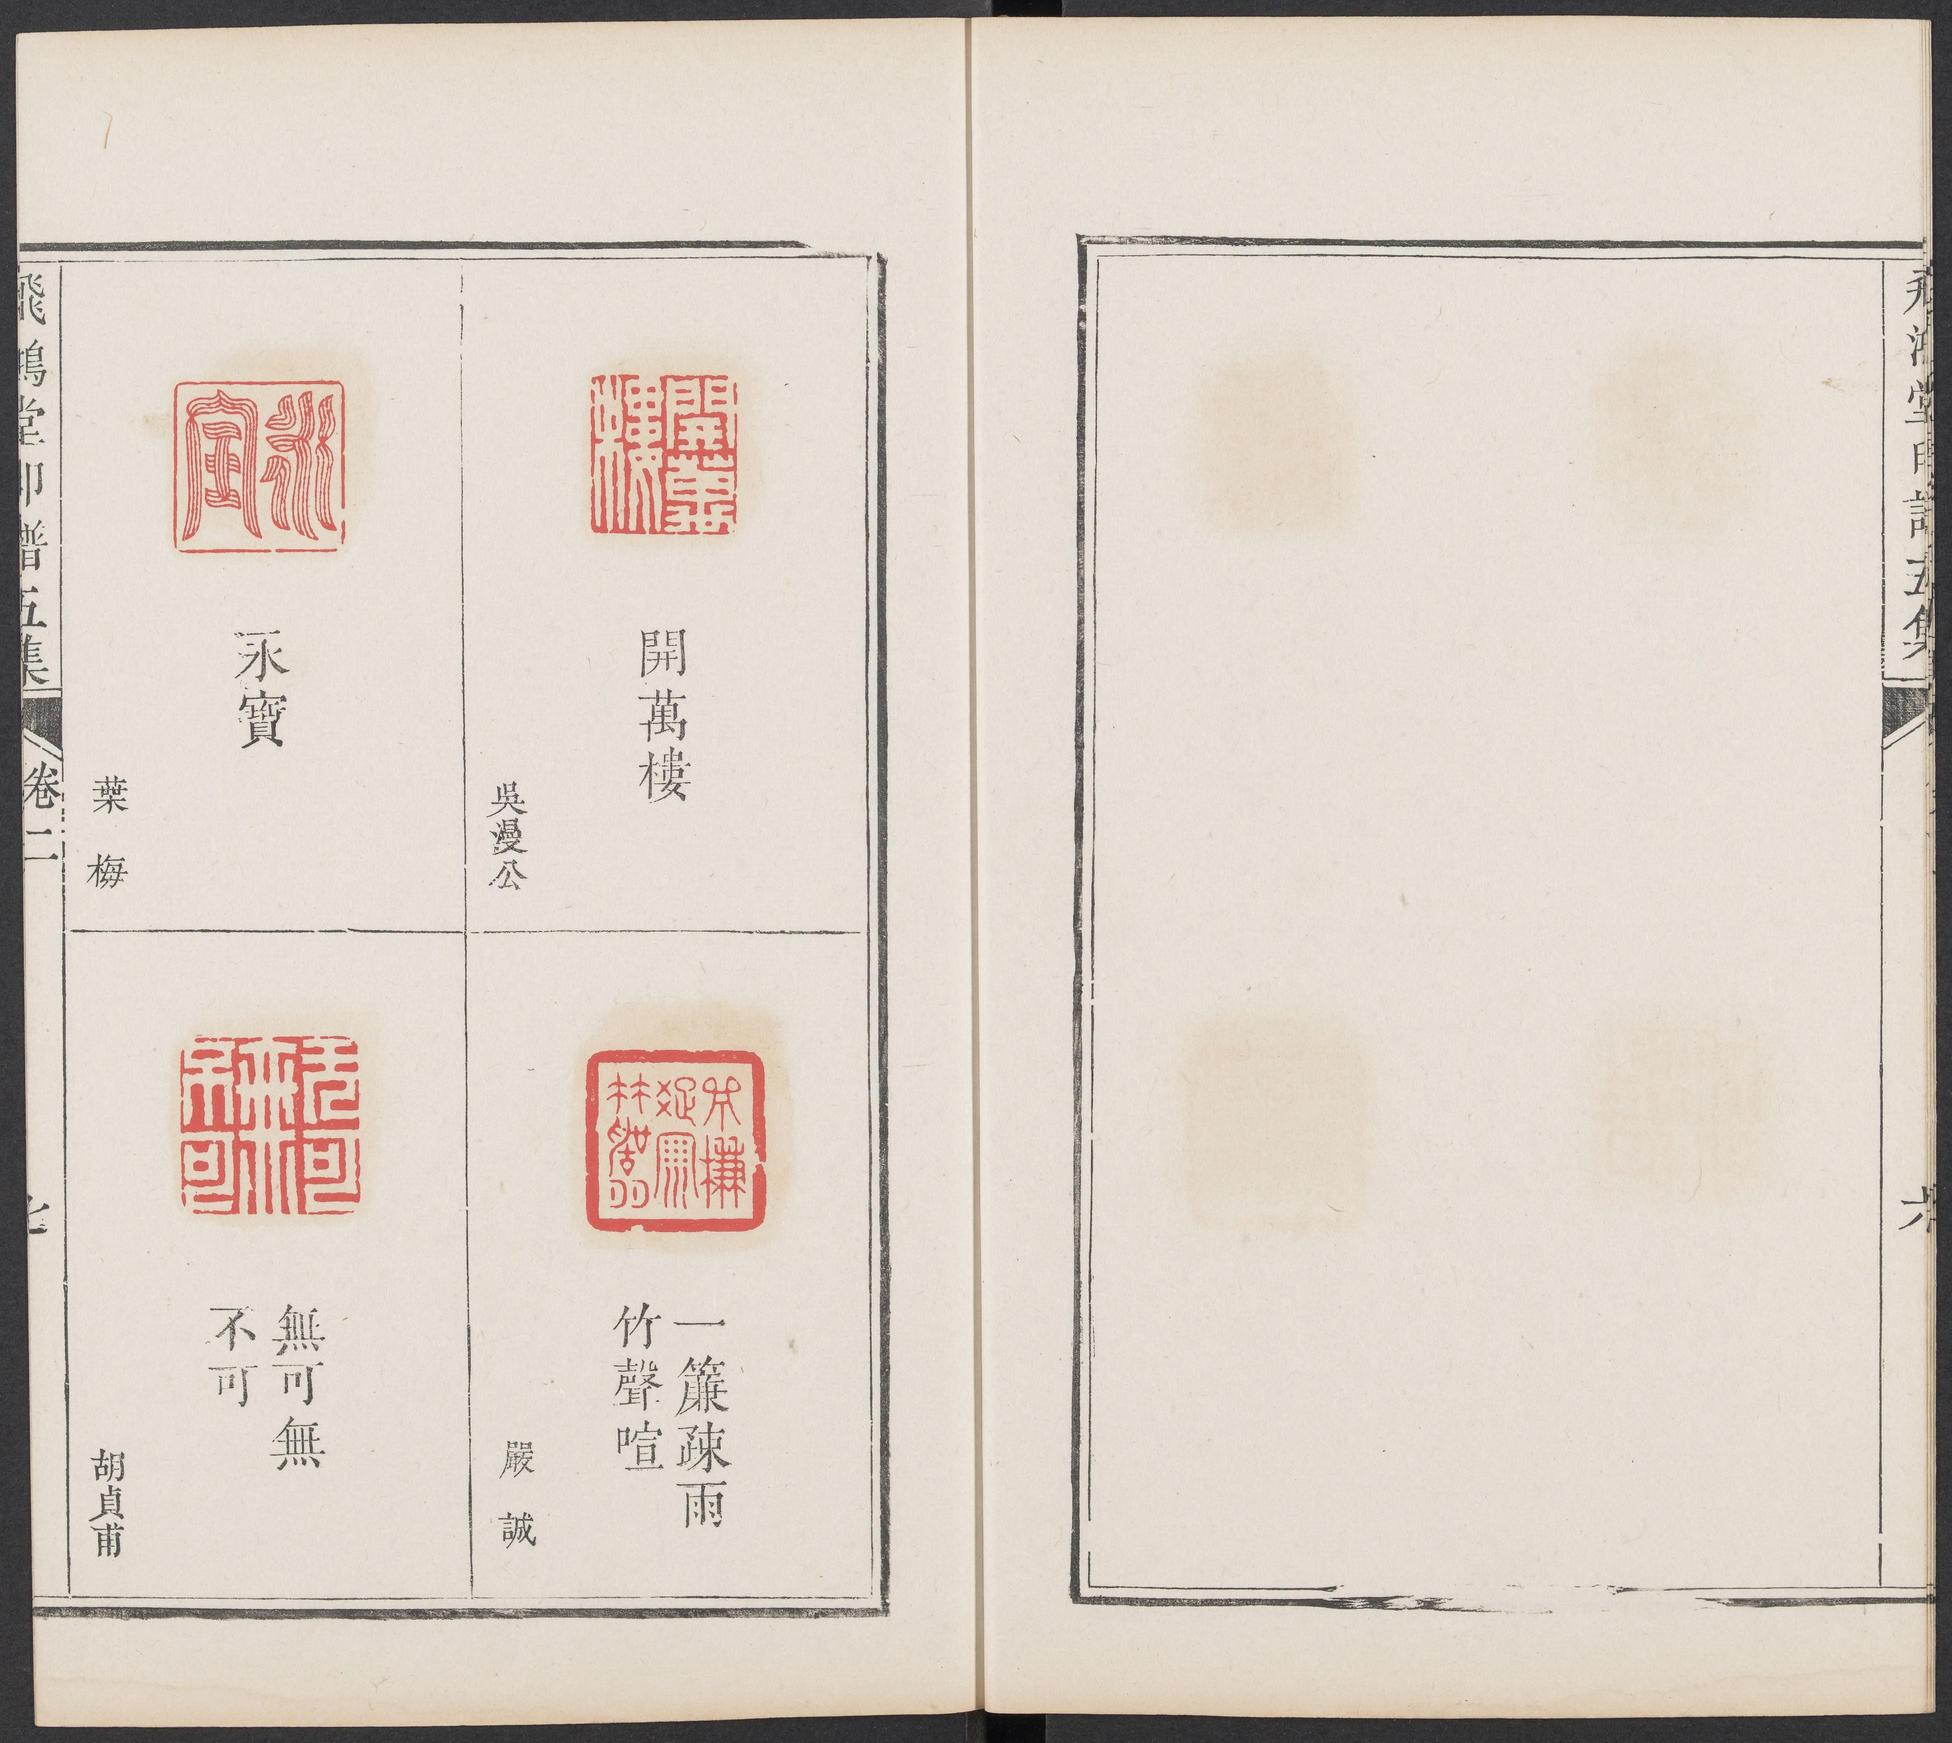 飛鴻堂印譜五集
六
開萬樓
開萬樓
吳漫公
一簾疎雨
竹聲喧
嚴誠
永寶
永寶
葉梅
無可無不可
無可無
不可
胡貞甫
飛鴻堂印譜五集
卷二
七